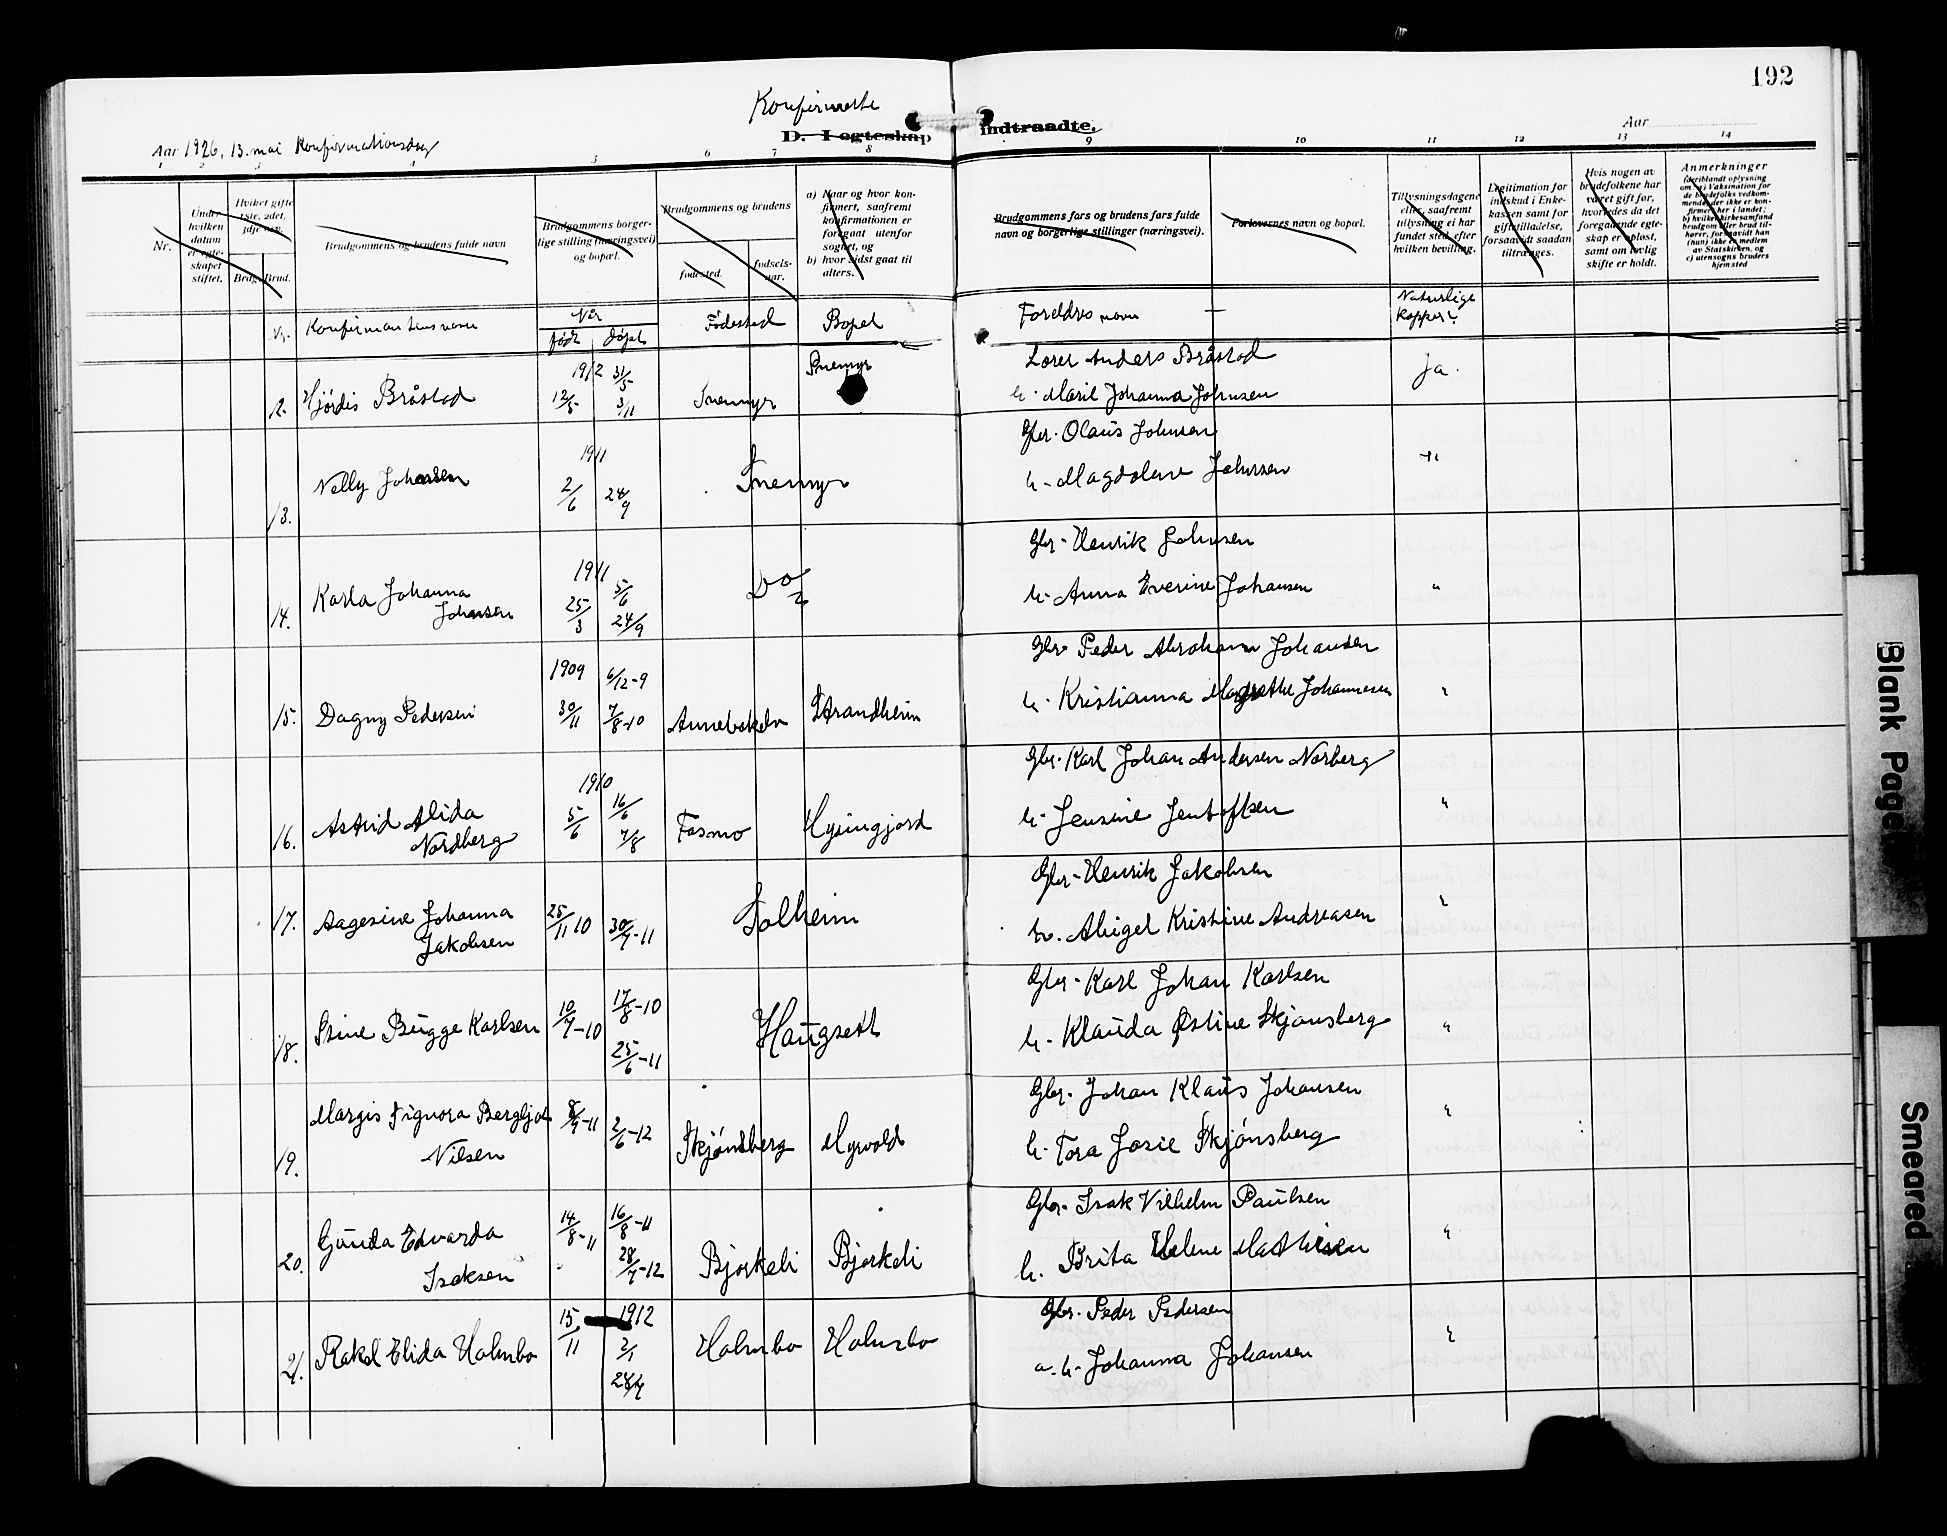 192
Konfirmerte
D. Ægteskap indtraadte.
Aar 1926, 13. mai Konfirmationsdag
Aar
1 2 3 4 5 6 7 8 9 10 11 12 13 14
Nr.
Under hvilken datum er egteskapet stiftet.
Hvilket gifte 1ste, 2det, 3dje osv.
Brudg. Brud.
Brudgommens og brudens fulde navn
Brudgommens borgerlige stilling (næringsvei) og bopæl.
Brudgommens og brudens
fødested.
fødselsaar.
a) Naar og hvor konfirmert, saafremt konfirmationen er foregaat utenfor sognet, og
b) hvor sidst gaat til alters.
Brudgommens fars og brudens fars fulde navn og borgerlige stillinger (næringsvei).
Forlovernes navn og bopæl.
Tillysningsdagene eller, saafremt tillysning ei har fundet sted, efter hvilken bevilling.
Legitimation for indskud i Enkekassen samt for giftetilladelse, forsaavidt saadan tiltrænges.
Hvis nogen av brudefolkene har været gift før, hvorledes da det foregaaende egteskap er opløst, samt om lovlig skifte er holdt.
Anmerkninger
Nr. Konfirmantens navn
Når
født døpt
Fødested Bopel
Foreldres navn
Naturlige kopper?
12. Hjørdis Bråstad 1912 12/5 31/5 3/11 Snemyr Snemyr
Lærer Anders Bråstad
h. Marit Johanna Johnsen
Ja.
13. Nelly Johansen 1911 2/6 24/9 Snemyr
Gbr. Olaus Johnsen
h. Magdalene Johnsen
"
14. Karla Johanna Johansen 1911 25/3 5/6 24/9 Do
Gbr. Henrik Johnsen
h. Anna Everine Johansen
"
15. Dagny Pedersen 1909 30/11 6/12-9 7/8-10 Strandheim
Gbr. Peder Abraham Johansen
h. Kristianna Margrethe Johannesen
"
16. Astrid Alida Nordberg 1910 5/6 16/6 7/8 Fosmo Hysingjord
Gbr. Karl Johan Andersen Norberg
h. Jensine Jentoftsen
"
17. Aagesine Johanna Jakobsen 25/11 10 30/7-11 Solheim
Gbr. Henrik Jakobsen
h. Abigel Kristine Andreasen
"
18. Stine Bugge Karlsen 10/7-10 17/8-10 25/6-11 Haugsett
Gbr. Karl Johan Karlsen
h. Klauda Østine Skjønsberg
"
19. Margis Signora Bergljot Nilsen 2/6-12 Skjønsberg Myrvold
Gbr. Johan Klaus Johansen
h. Tora Josie Skjønsberg
"
20. Gunda Edvarda Isaksen 14/8-11 16/8-11 28/7-12 Bjørkeli Bjørkeli
Gbr. Isak Vilhelm Paulsen
h. Brita Helene Mathisen
"
21. Rakel Elida Holmbo 15/11 1912 2/1 28/7 Holmbo Holmbo
Gbr. Peder Pedersen
h. Johanna Johansen
"
Blank Page
Smeared